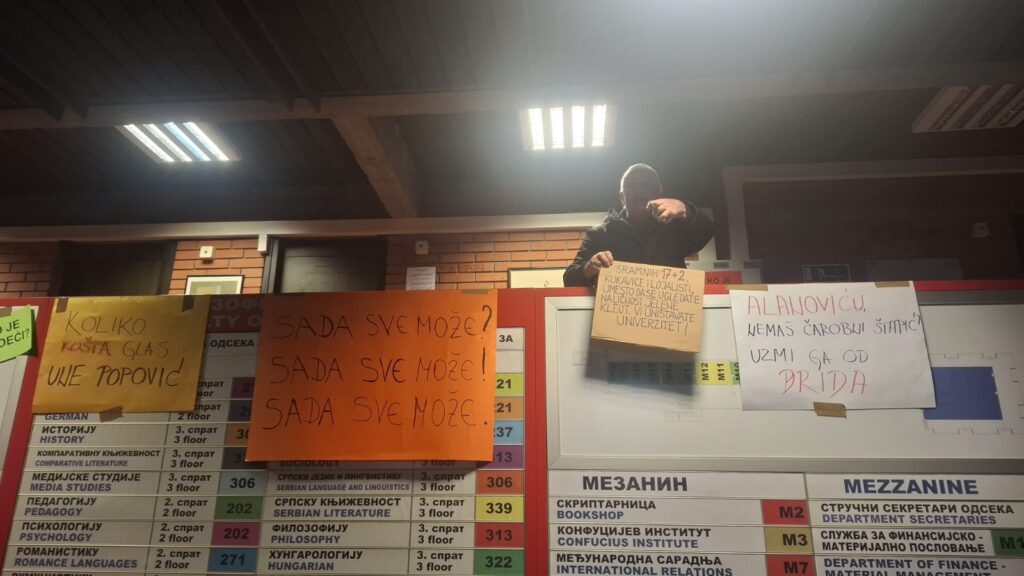 O JE
DEĆI?
KOLIKO
KOŠTA GLAS
UNE POPOVIĆ
SADA SVE MOŽE?
SADA SVE MOŽE!
SADA SVE MOŽE.
SRAMNIH 17+2
KUKAVICE I LOJALISTI,
UMESTO DA SE UGLEDATE
NA LIČNOST DJERE
KLEUT, VI UNIŠTAVATE
UNIVERZITET!
KO JE
ALANOVIĆU,
NEMAŠ ČAROBNI ŠTAPIĆ?
UZMI GA OD
DRIDA
ЗОФ
TY O
ОДСЕКА
ЗА
спрат
floor
21
21
237
313
M12
M11
GERMAN
2 floor
ИСТОРИЈУ
HISTORY
3. спрат
3 floor
КОМПАРАТИВНУ КЊИЖЕВНОСТ
COMPARATIVE LITERATURE
3. спрат
3 floor
SOCIOLOGY
3 floor
МЕДИЈСКЕ СТУДИЈЕ
MEDIA STUDIES
3. спрат
3 floor
306
СРПСКИ ЈЕЗИК И ЛИНГВИСТИКУ
SERBIAN LANGUAGE AND LINGUISTICS
3. спрат
3 floor
306
ПЕДАГОГИЈУ
PEDAGOGY
2. спрат
2 floor
202
СРПСКУ КЊИЖЕВНОСТ
SERBIAN LITERATURE
3. спрат
3 floor
339
ПСИХОЛОГИЈУ
PSYCHOLOGY
2. спрат
2 floor
202
ФИЛОЗОФИЈУ
PHILOSOPHY
3. спрат
3 floor
313
РОМАНИСТИКУ
ROMANCE LANGUAGES
2. спрат
2 floor
271
ХУНГАРОЛОГИЈУ
HUNGARIAN
3. спрат
3 floor
322
МЕЗАНИН
СКРИПТАРНИЦА
BOOKSHOP
M2
КОНФУЦИЈЕВ ИНСТИТУТ
CONFUCIUS INSTITUTE
M3
МЕЂУНАРОДНА САРАДЊА
INTERNATIONAL RELATIONS
M7
MEZZANINE
СТРУЧНИ СЕКРЕТАРИ ОДСЕКА
DEPARTMENT SECRETARIES
СЛУЖБА ЗА ФИНАНСИЈСКО-
МАТЕРИЈАЛНО ПОСЛОВАЊЕ
DEPARTMENT OF FINANCE -